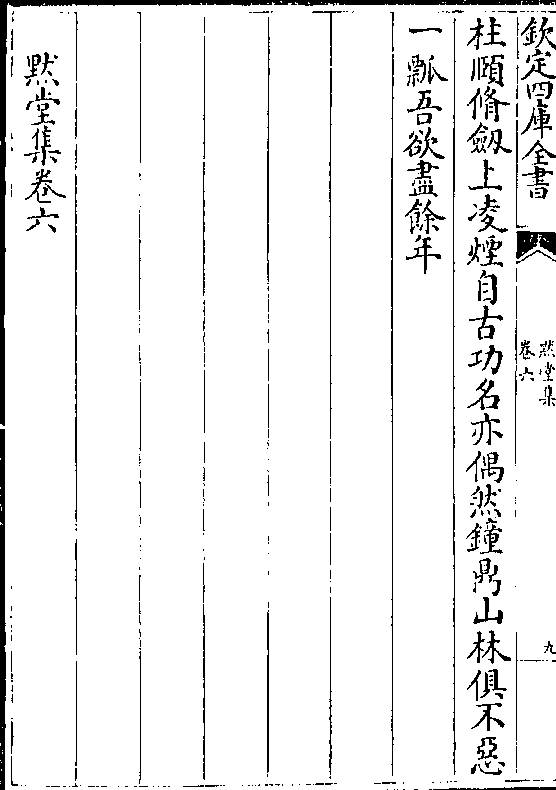 欽定四庫全書
黙堂集
卷六
九
柱頤脩劔上凌煙自古功名亦偶然鐘鼎山林俱不惡
一瓢吾欲盡餘年
黙堂集卷六